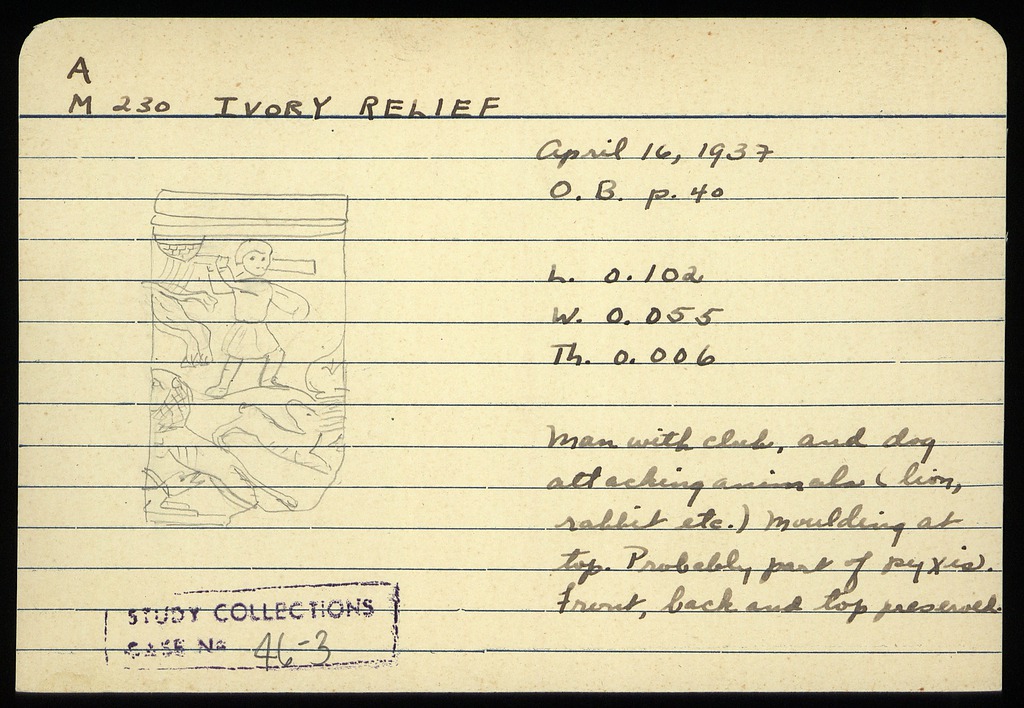 A
M 230 IVORY RELIEF
April 16, 1937
O. B. p. 40
L. 0.102
W. 0.055
Th. 0.006
Man with club, and dog
attacking animals (lion,
rabbit etc.) Moulding at
top. Probably part of pyxis.
Front, back and top preserved.
STUDY COLLECTIONS
CASE No 46-3